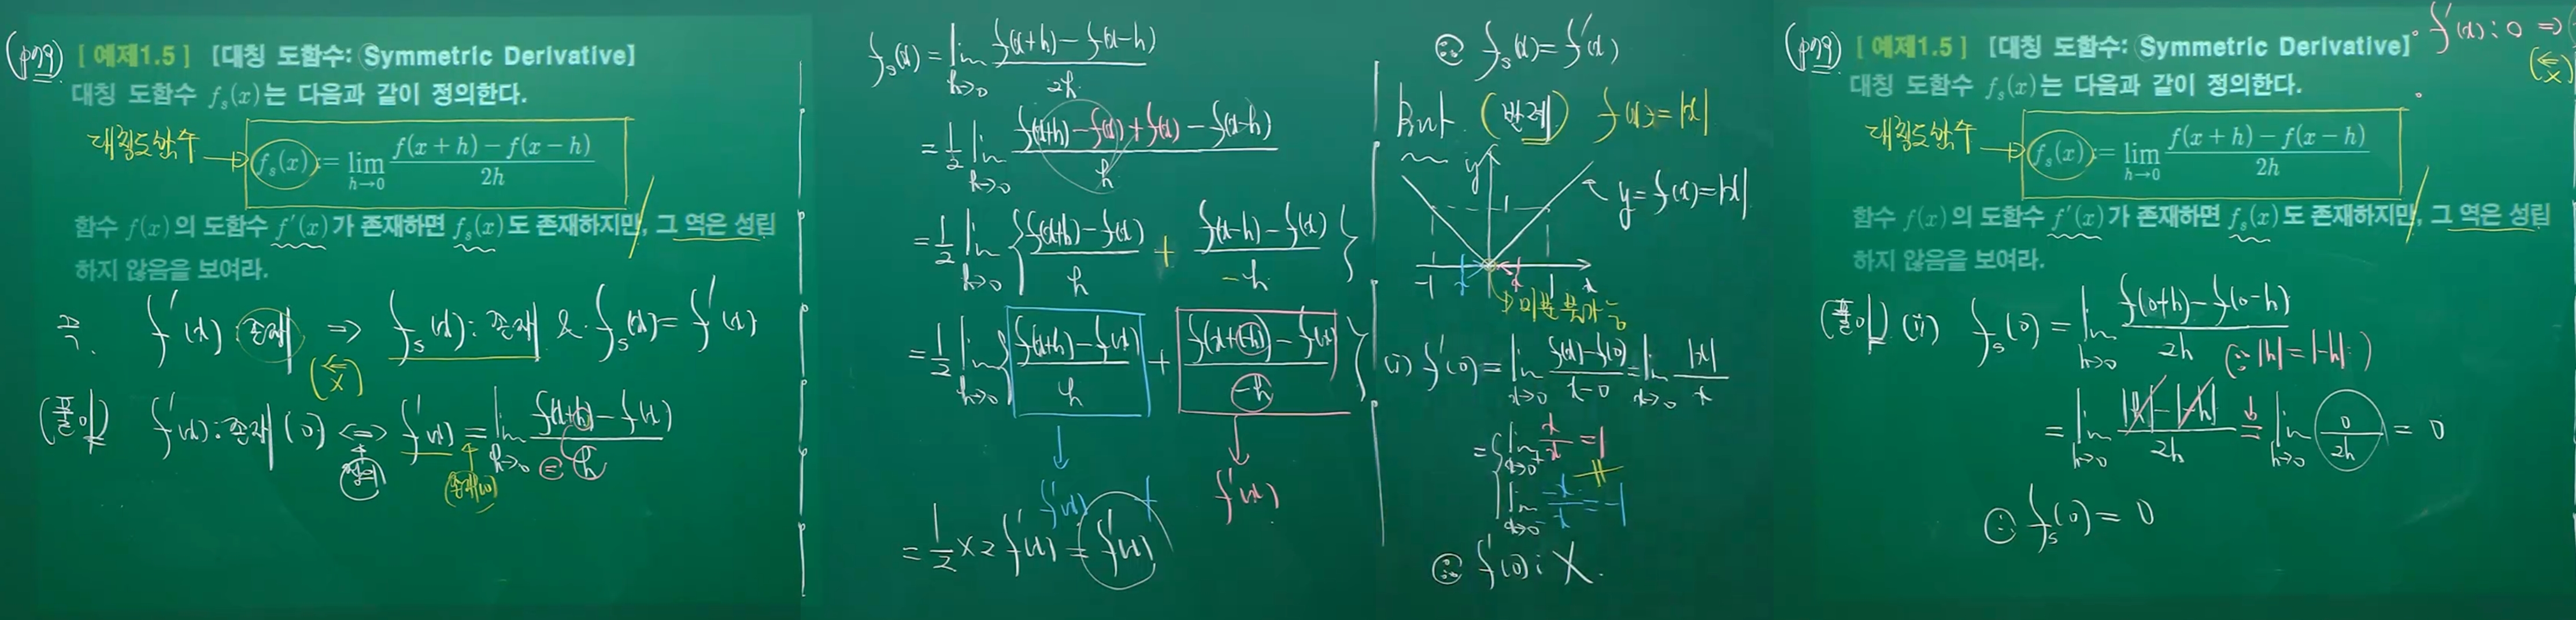 (p79) [예제1.5] [대칭 도함수: Symmetric Derivative]
대칭 도함수 f_s(x)는 다음과 같이 정의한다.
대칭도함수 → f_s(x) := lim_{h→0} (f(x+h)-f(x-h))/2h
함수 f(x)의 도함수 f'(x)가 존재하면 f_s(x)도 존재하지만, 그 역은 성립
하지 않음을 보여라.
즉. f'(x) 존재 ⇒ f_s(x): 존재 & f_s(x)=f'(x)
(⇐ X)
(풀이) f'(x): 존재(0) ⇔ f'(x) = lim_{h→0} (f(x+h)-f(x))/h
정의 존재(0) =
f_s(x) = lim_{h→0} (f(x+h)-f(x-h))/2h
= 1/2 lim_{h→0} (f(x+h)-f(x)+f(x)-f(x-h))/h
= 1/2 lim_{h→0} { (f(x+h)-f(x))/h + (f(x-h)-f(x))/-h }
= 1/2 lim_{h→0} { (f(x+h)-f(x))/h + (f(x+(-h))-f(x))/-h }
↓ ↓
f'(x) + f'(x)
= 1/2 × 2 f'(x) = f'(x)
∴ f_s(x)=f'(x)
But. (반례) f(x)=|x|
y
y=f(x)=|x|
1
-1 x x 1 x
미분 불가능
(i) f'(0) = lim_{x→0} (f(x)-f(0))/(x-0) = lim_{x→0} |x|/x
= { lim_{x→0+} x/x = 1
≠
lim_{x→0-} -x/x = -1
∴ f'(0): X.
(p79) [예제1.5] [대칭 도함수: Symmetric Derivative]
· f'(x): 0 ⇒
(⇐ X)
대칭 도함수 f_s(x)는 다음과 같이 정의한다.
대칭도함수 → f_s(x) := lim_{h→0} (f(x+h)-f(x-h))/2h
함수 f(x)의 도함수 f'(x)가 존재하면 f_s(x)도 존재하지만, 그 역은 성립
하지 않음을 보여라.
(풀이) (ii) f_s(0) = lim_{h→0} (f(0+h)-f(0-h))/2h
(∵ |h|=|-h|)
= lim_{h→0} (|h|-|-h|)/2h = lim_{h→0} 0/2h = 0
∴ f_s(0)=0